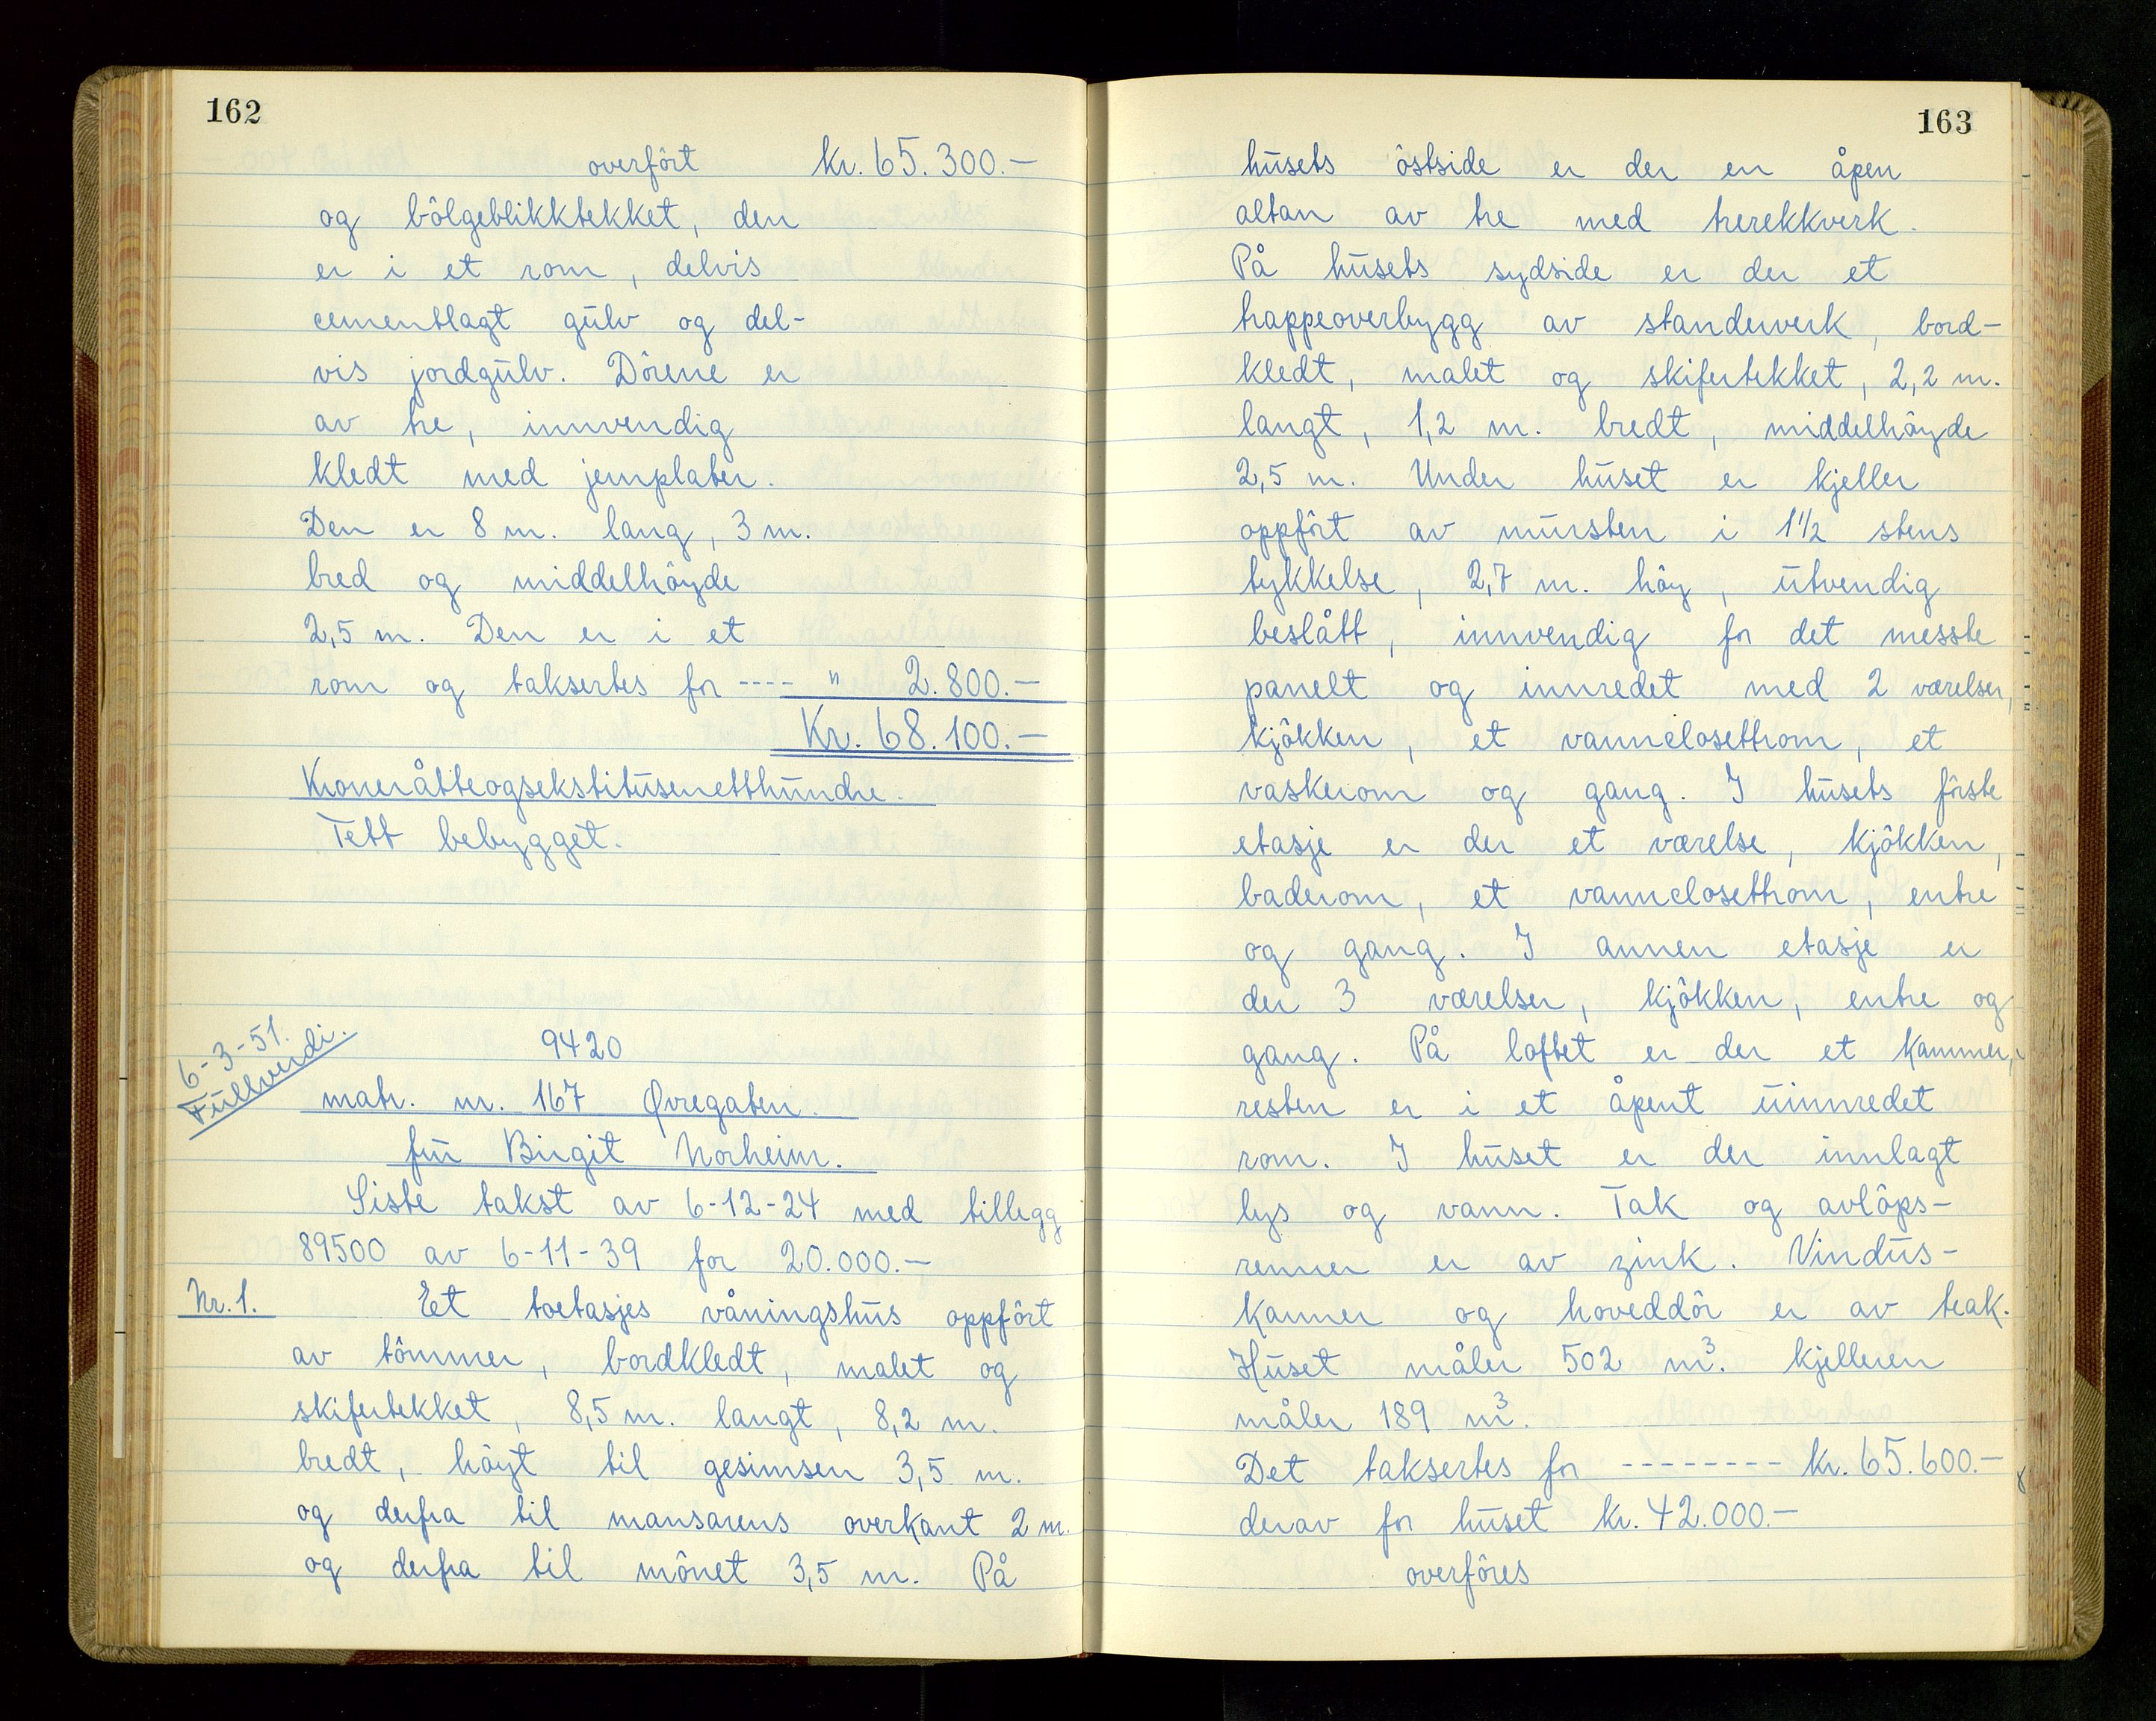 162
overfört kr. 65.300.-
og bölgeblikktekket, den
er i et rom, delvis
cementlagt gulv og del-
vis jordgulv. Dörene er
av tre, innvendig
kledt med jernplater.
Den er 8 m. lang, 3 m.
bred og middelhöyde
2,5 m. Den er i et
rom og taksertes for ---- " 2.800.-
Kr. 68.100.-
Kroneråtteogsekstitusenetthundre.
Tett bebygget.
6-3-51.
Fullverdi.
9420
matr. nr. 167 Øvregaten.
fru Birgit Norheim.
Siste takst av 6-12-24 med tillegg
89500 av 6-11-39 for 20.000.-
Nr. 1. Et toetasjes våningshus oppfört
av tömmer, bordkledt, malet og
skifertekket, 8,5 m. langt, 8,2 m.
bredt, höyt til gesimsen 3,5 m.
og derfra til mansarens overkant 2 m.
og derfra til mönet 3,5 m. På
163
husets östside er der en åpen
altan av tre med trerekkverk.
På husets sydside er der et
trappeoverbygg av standerverk, bord-
kledt, malet og skifertekket, 2,2 m.
langt, 1,2 m. bredt, middelhöyde
2,5 m. Under huset er kjeller
oppfört av mursten i 1 1/2 stens
tykkelse, 2,7 m. höy, utvendig
beslått, innvendig for det messte
panelt og innredet med 2 værelser,
kjökken, et vannclosettrom, et
vaskerom og gang. I husets förste
etasje er der et værelse, kjökken,
baderom, et vannclosettrom, entre
og gang. I annen etasje er
der 3 værelser, kjökken, entre og
gang. På loftet er der et kammer,
resten er i et åpent uinnredet
rom. I huset er der innlagt
lys og vann. Tak og avlöps-
renner er av zink. Vindus-
karmer og hoveddör er av teak.
Huset måler 502 m³. kjelleren
måler 189 m³.
Det taksertes for -------- kr. 65.600.-
derav for huset kr. 42.000.-
overföres